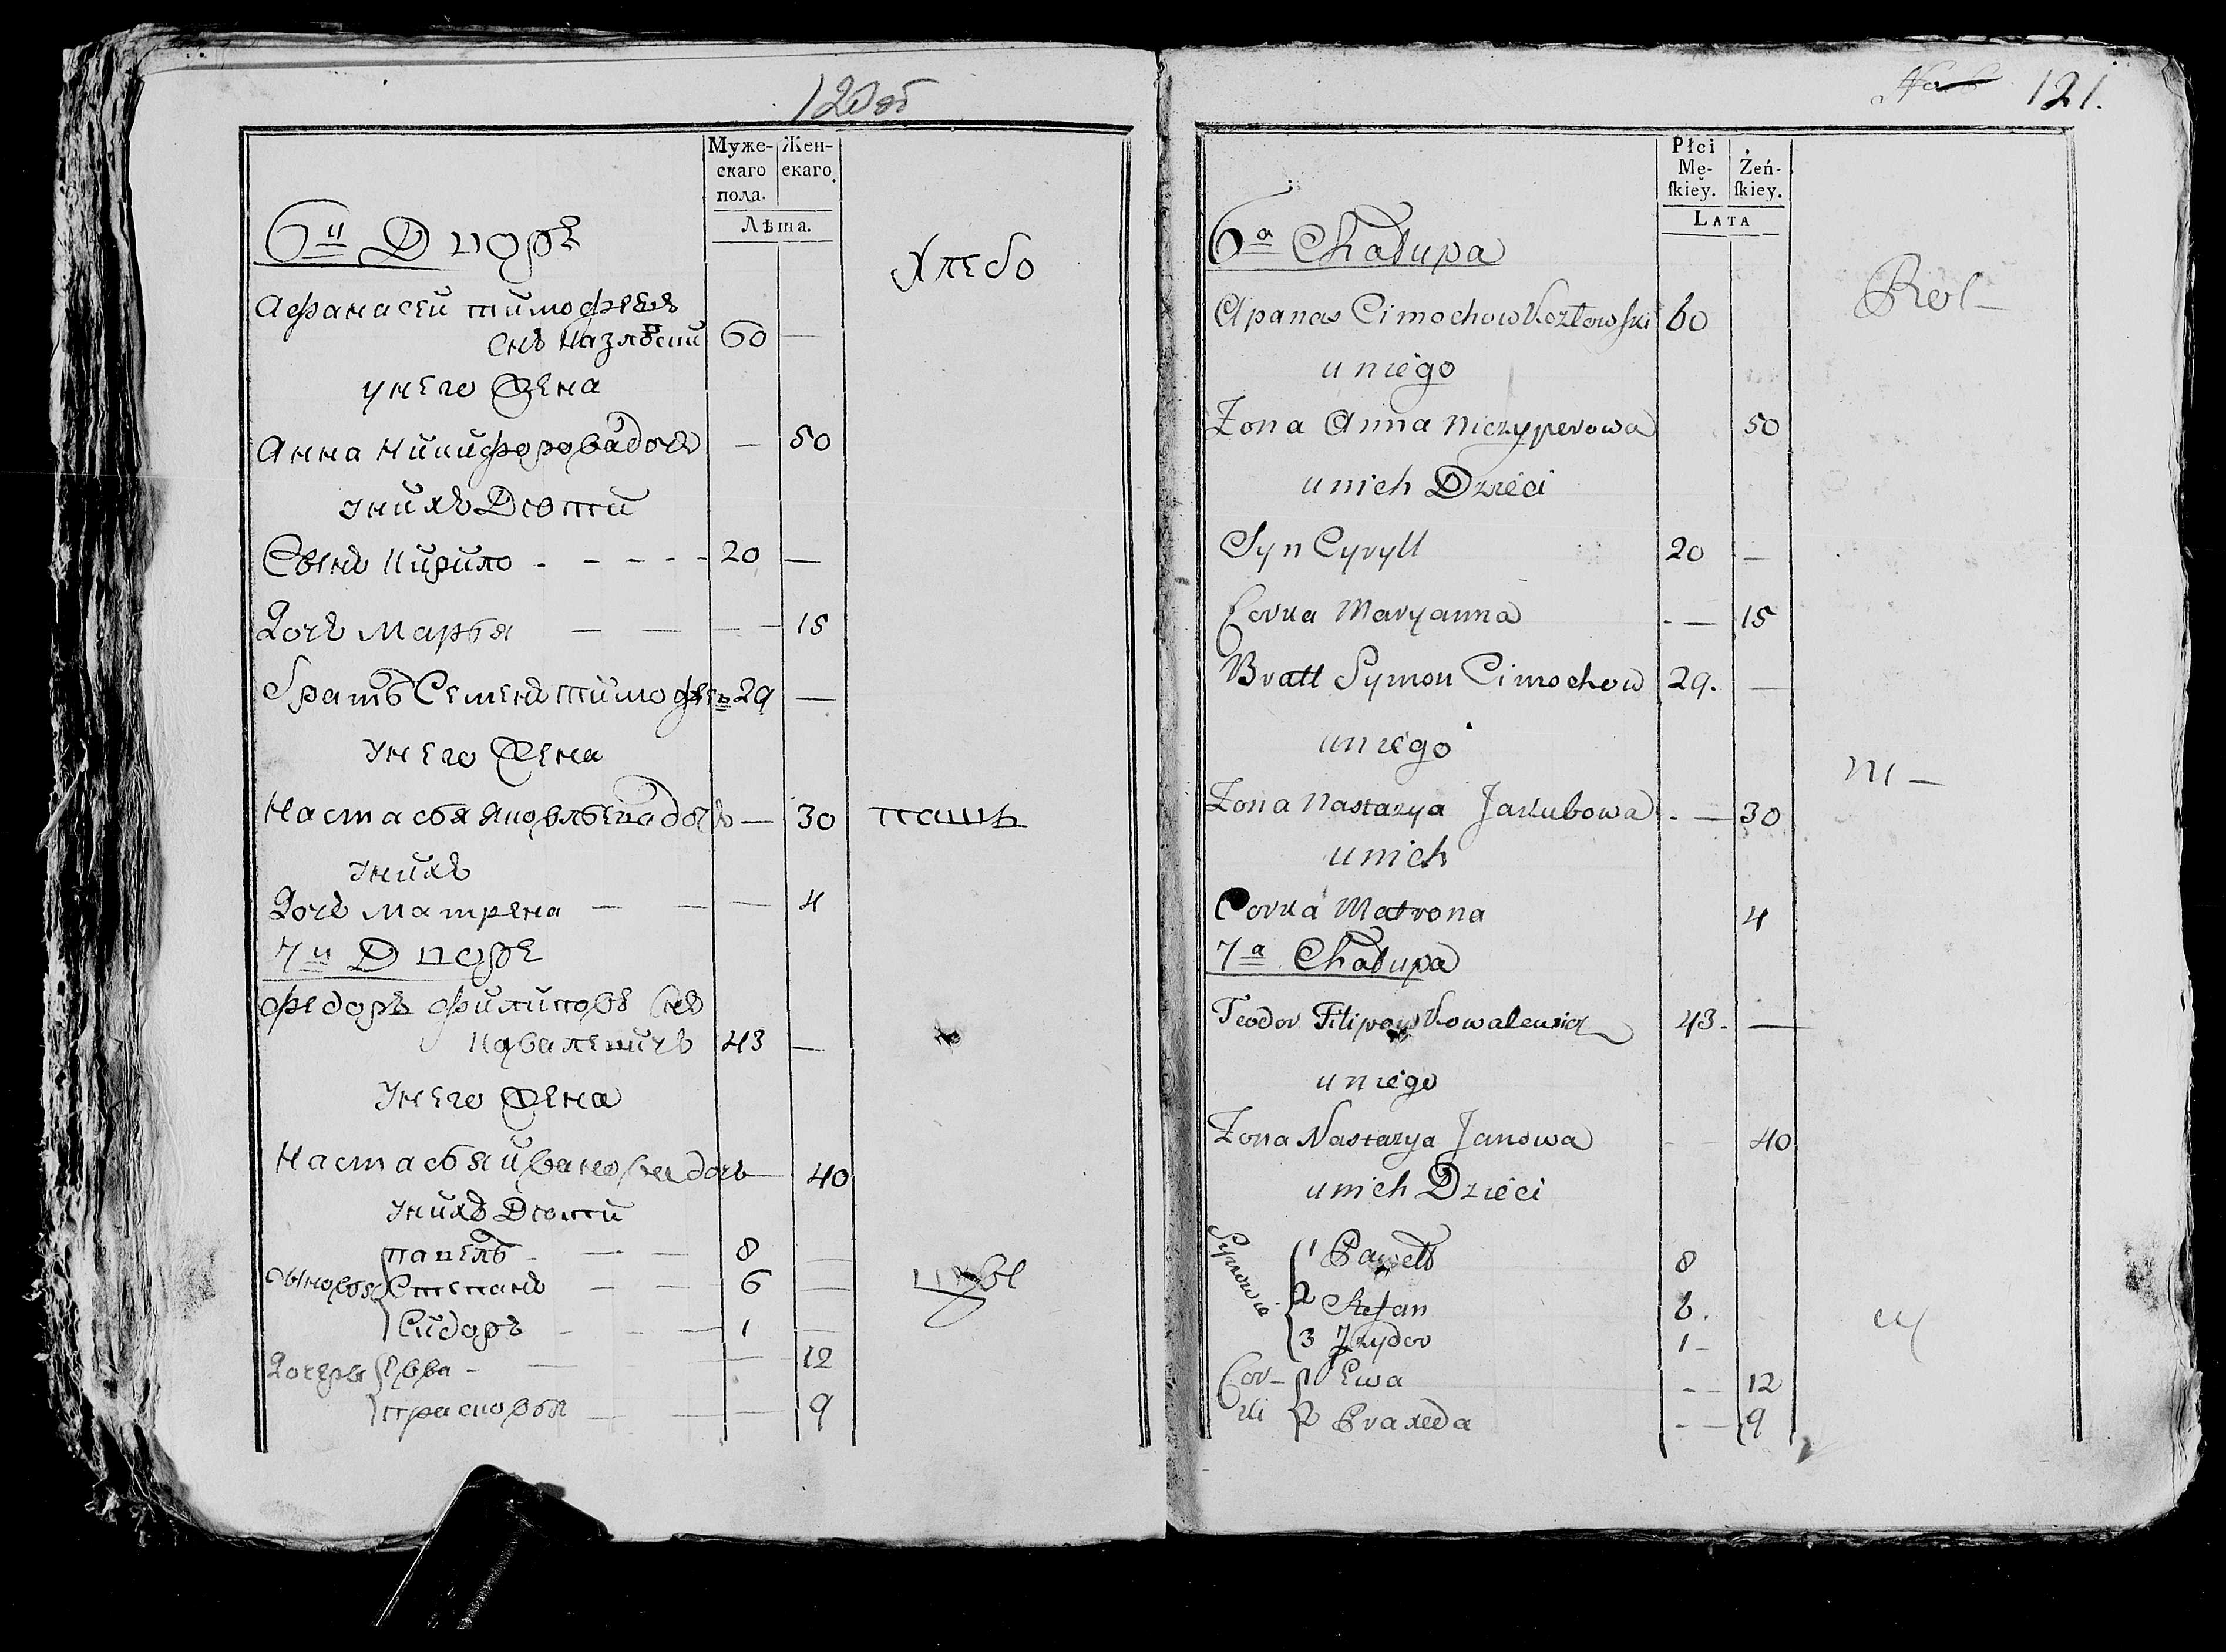 120об
Муже-
скаго
пола.
Жен-
скаго.
Лѣта.
6й Дворъ
Хлебо
Афанасей Тимофеевъ
Снъ Казловский 60 —
у него Жена
Анна Никифорова дочь — 50
у нихъ Дѣти
Сынъ Кирило - - - - - 20 —
Дочь Марья — — — 15
Братъ Семенъ Тимофеевъ 29 —
у него Жена
Настасья Яковлева дочь — 30 паше
у нихъ
Дочь Матрена — — — 4
7й Дворъ
Федоръ Филиповъ Снъ
Ковалевичъ 43 —
у него Жена
Настасья Иванова дочь — 40
у нихъ Дѣти
Сыновья
Павелъ - — — 8 —
Степанъ — — 6 —
Сидоръ - — — 1 —
Дочери
Евва - — — 12
Прасковья — — — 9
121.
Płci
Mę-
skiey.
Żeń-
skiey.
LATA
6a Chałupa
Rol—
Apanas Cimochow Kozłowski 60
u niego
Zona Anna Niczyperowa 50
u nich Dzieci
Syn Cyryll 20 —
Corka Maryanna - — 15
Bratt Symon Cimochow 29. —
u niego
m —
Zona Nastazya Jakubowa - — 30
u nich
Corka Matrona 4
7a Chałupa
Teodor Filipow Kowalewicz 43 - —
u niego
Zona Nastazya Janowa - — 40
u nich Dzieci
Synowie
1 Pawełł 8
2 Stefan 6.
3 Jzydor 1 -
Cor-
ki
1 Ewa - — 12
2 Praxeda - — 9